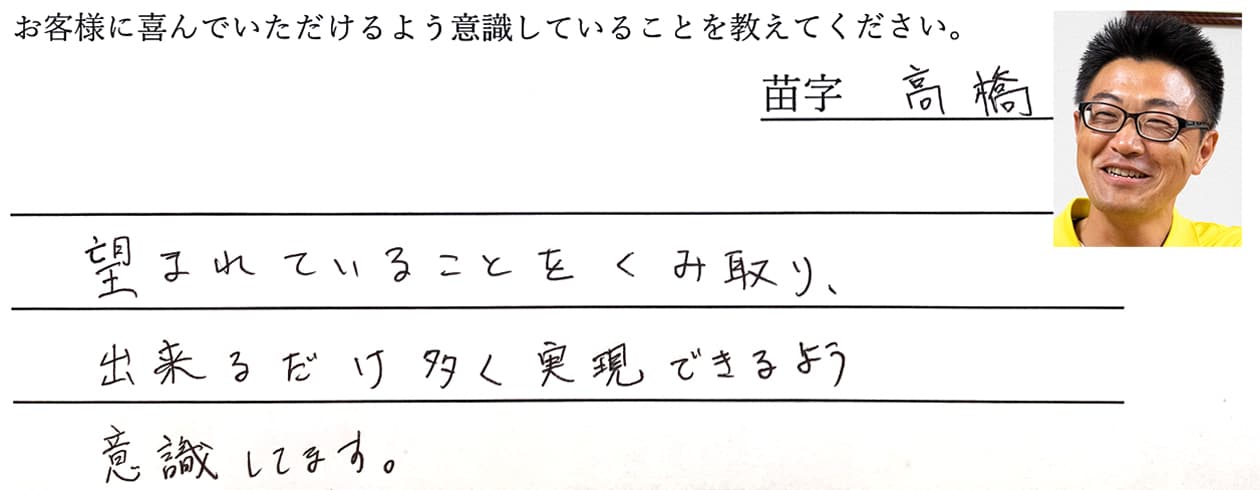 お客様に喜んでいただけるよう意識していることを教えてください。
苗字 高橋
望まれていることをくみ取り、
出来るだけ多く実現できるよう
意識してます。